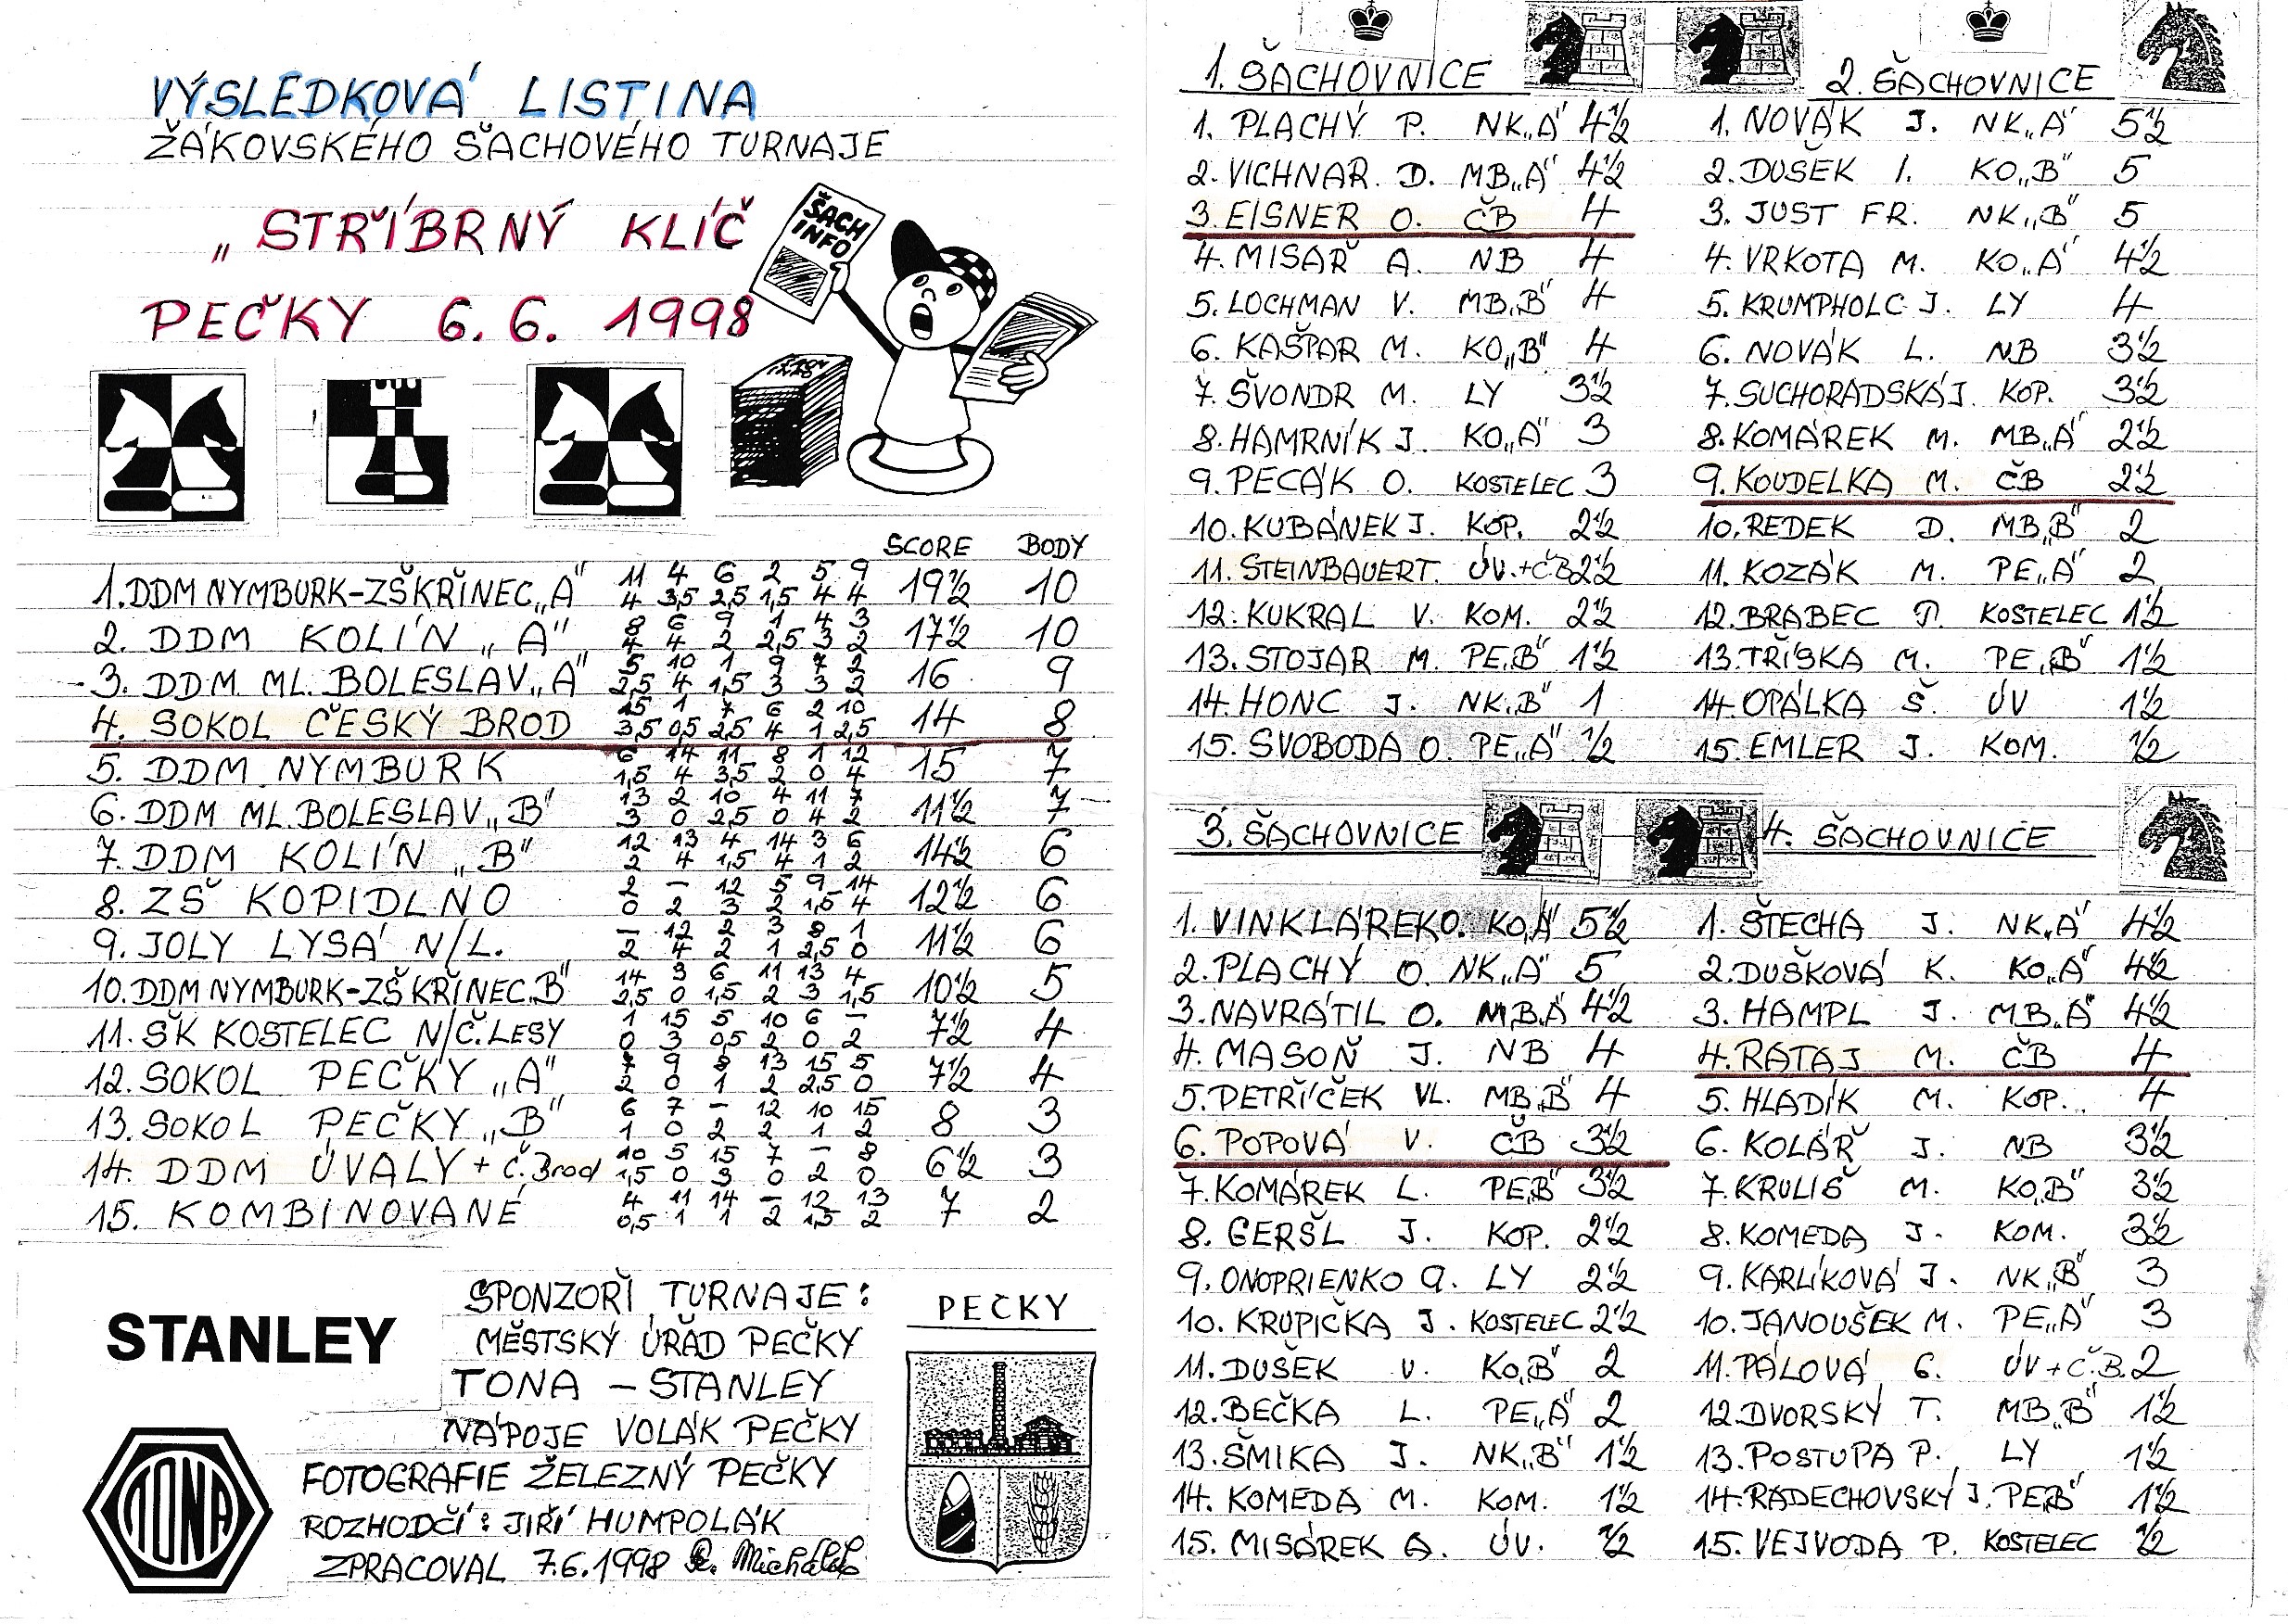 VÝSLEDKOVÁ LISTINA
ŽÁKOVSKÉHO ŠACHOVÉHO TURNAJE
„STŘÍBRNÝ KLÍČ
PEČKY 6.6. 1998
ŠACH INFO
SCORE BODY
1. DDM NYMBURK-ZŠ KŘINEC „A" 11 4 6 2 5 9 19½ 10
4 3,5 2,5 1,5 4 4
2. DDM KOLÍN „A" 8 6 9 1 4 3 17½ 10
4 4 2 2,5 3 2
3. DDM ML. BOLESLAV „A" 5 10 1 9 7 2 16 9
2,5 4 1,5 3 3 2
4. SOKOL ČESKÝ BROD 15 1 7 6 2 10 14 8
3,5 0,5 2,5 4 1 2,5
5. DDM NYMBURK 6 14 11 8 1 12 15 7
1,5 4 3,5 2 0 4
6. DDM ML. BOLESLAV „B" 13 2 10 4 11 7 11½ 7
3 0 2,5 0 4 2
7. DDM KOLÍN „B" 12 13 4 14 3 6 14½ 6
2 4 1,5 4 1 2
8. ZŠ KOPIDLNO 2 - 12 5 9 14 12½ 6
0 2 3 2 1,5 4
9. JOLY LYSÁ N/L. - 12 2 3 8 1 11½ 6
2 4 2 1 2,5 0
10. DDM NYMBURK-ZŠ KŘINEC „B" 14 3 6 11 13 4 10½ 5
2,5 0 1,5 2 3 1,5
11. ŠK KOSTELEC N/Č. LESY 1 15 5 10 6 - 7½ 4
0 3 0,5 2 0 2
12. SOKOL PEČKY „A" 7 9 8 13 15 5 7½ 4
2 0 1 2 2,5 0
13. SOKOL PEČKY „B" 6 7 - 12 10 15 8 3
1 0 2 2 1 2
14. DDM ÚVALY + Č. Brod 10 5 15 7 - 8 6½ 3
1,5 0 3 0 2 0
15. KOMBINOVANÉ 4 11 14 - 12 13 7 2
0,5 1 1 2 1,5 2
SPONZOŘI TURNAJE:
MĚSTSKÝ ÚŘAD PEČKY
TONA - STANLEY
NÁPOJE VOLÁK PEČKY
FOTOGRAFIE ŽELEZNÝ PEČKY
ROZHODČÍ: JIŘÍ HUMPOLÁK
ZPRACOVAL 7.6.1998
STANLEY
TONA
PEČKY
1. ŠACHOVNICE
1. PLACHÝ P. NK„A" 4½
2. VICHNAR D. MB„A" 4½
3. EISNER O. ČB 4
4. MISAŘ A. NB 4
5. LOCHMAN V. MB„B" 4
6. KAŠPAR M. KO„B" 4
7. ŠVONDR M. LY 3½
8. HAMRNÍK J. KO„A" 3
9. PECÁK O. KOSTELEC 3
10. KUBÁNEK J. KOP. 2½
11. STEINBAUER T. ÚV.+ČB 2½
12. KUKRAL V. KOM. 2½
13. STOJAR M. PE„B" 1½
14. HONC J. NK„B" 1
15. SVOBODA O. PE„A" ½
2. ŠACHOVNICE
1. NOVÁK J. NK„A" 5½
2. DUŠEK I. KO„B" 5
3. JUST FR. NK„B" 5
4. VRKOTA M. KO„A" 4½
5. KRUMPHOLC J. LY 4
6. NOVÁK L. NB 3½
7. SUCHORADSKÁ J. KOP. 3½
8. KOMÁREK M. MB„A" 2½
9. KOUDELKA M. ČB 2½
10. REDEK D. MB„B" 2
11. KOZÁK M. PE„A" 2
12. BRABEC P. KOSTELEC 1½
13. TŘÍSKA M. PE„B" 1½
14. OPÁLKA Š. ÚV 1½
15. EMLER J. KOM. ½
3. ŠACHOVNICE
1. VINKLÁREK O. KO„A" 5½
2. PLACHÝ O. NK„A" 5
3. NAVRÁTIL O. MB„A" 4½
4. MASOŇ J. NB 4
5. PETŘÍČEK VL. MB„B" 4
6. POPOVÁ V. ČB 3½
7. KOMÁREK L. PE„B" 3½
8. GERŠL J. KOP. 2½
9. ONOPRIENKO A. LY 2½
10. KRUPIČKA J. KOSTELEC 2½
11. DUŠEK V. KO„B" 2
12. BEČKA L. PE„A" 2
13. ŠMIKA J. NK„B" 1½
14. KOMEDA M. KOM. 1½
15. MISÁREK A. ÚV. ½
4. ŠACHOVNICE
1. ŠTECHA J. NK„A" 4½
2. DUŠKOVÁ K. KO„A" 4½
3. HAMPL J. MB„A" 4½
4. RATAJ M. ČB 4
5. HLADÍK M. KOP. 4
6. KOLÁŘ J. NB 3½
7. KRULIŠ M. KO„B" 3½
8. KOMEDA J. KOM. 3½
9. KARLÍKOVÁ J. NK„B" 3
10. JANOUŠEK M. PE„A" 3
11. PÁLOVÁ G. ÚV+Č.B. 2
12. DVORSKÝ T. MB„B" 1½
13. POSTUPA P. LY 1½
14. RADECHOVSKÝ J. PE„B" 1½
15. VEJVODA P. KOSTELEC ½